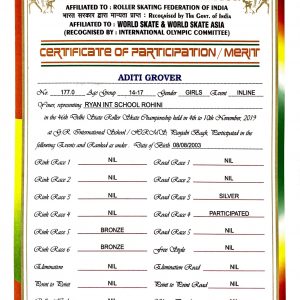 AFFILIATED TO : ROLLER SKATING FEDERATION OF INDIA
भारत सरकार द्वारा मान्यता प्राप्त : Recognised by The Govt. of India
AFFILIATED TO : WORLD SKATE & WORLD SKATE ASIA
(RECOGNISED BY : INTERNATIONAL OLYMPIC COMMITTEE)
CERTIFICATE OF PARTICIPATION / MERIT
ADITI GROVER
No 177.0 Age Group 14-17 Gender GIRLS Event INLINE
Years, representing RYAN INT SCHOOL ROHINI
in the 46th Delhi State Roller Skate Championship held on 4th to 10th November, 2019
at G.R. International School / Punjabi Bagh. Participated in the
following Events and Ranked as under. Date of Birth 08/08/2003
Rink Race 1 NIL Road Race 1 NIL
Rink Race 2 NIL Road Race 2 NIL
Rink Race 3 NIL Road Race 3 SILVER
Rink Race 4 NIL Road Race 4 PARTICIPATED
Rink Race 5 BRONZE Road Race 5 NIL
Rink Race 6 BRONZE Free Style NIL
Elimination NIL Elimination Road NIL
Point to Point NIL Point to Point Road NIL